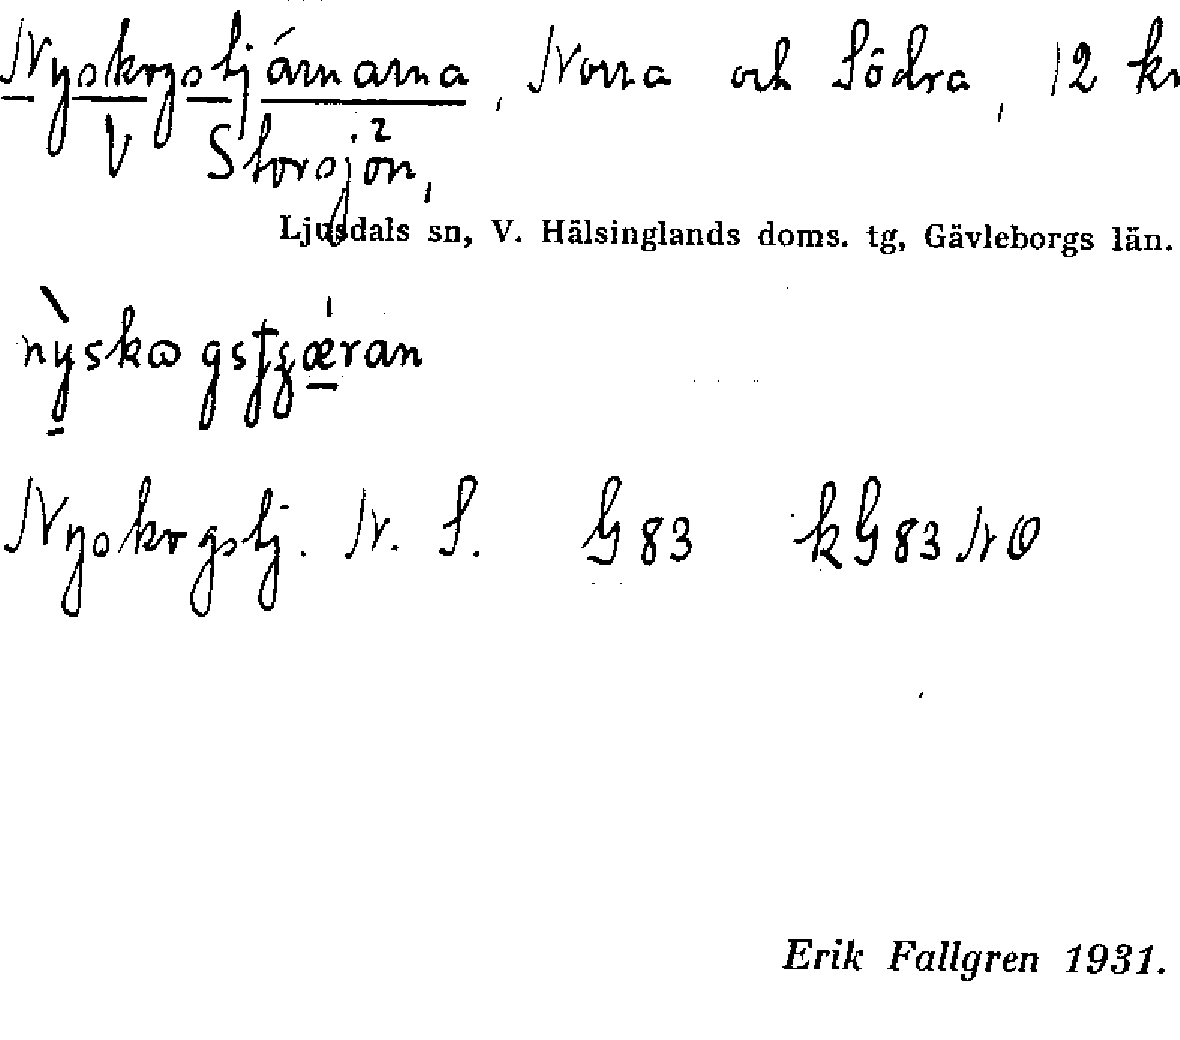 Nyskogstjärnarna, Norra och Södra, 12 km
V Storsjön,
Ljusdals sn, V. Hälsinglands doms. tg, Gävleborgs län.
Nyskogstj. N. S. G 83 kG 83 NO
Erik Fallgren 1931.